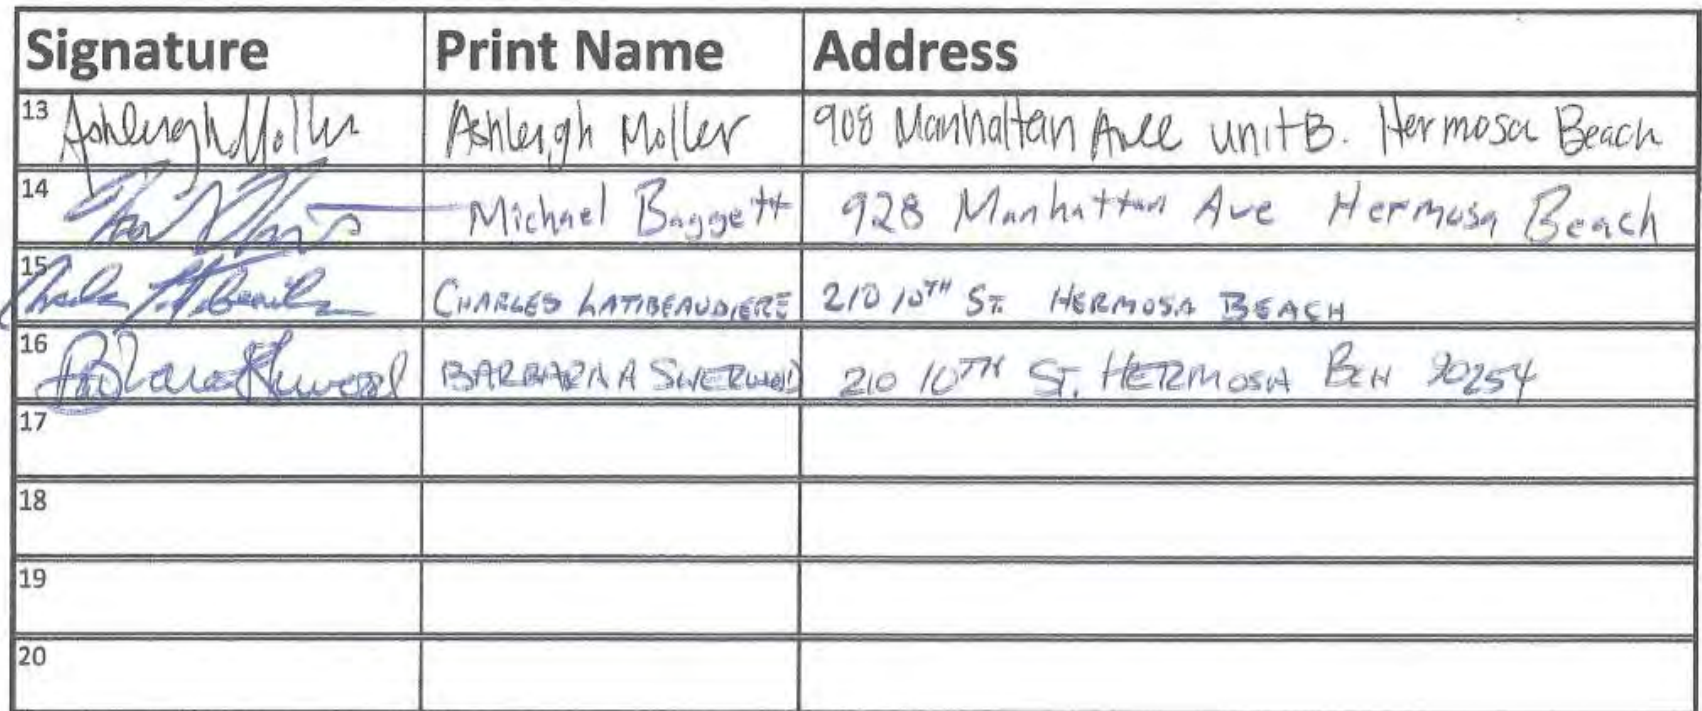 Signature Print Name Address
13 Ashleigh Moller Ashleigh Moller 908 Manhattan Ave unit B. Hermosa Beach
14 Michael Baggett 928 Manhattan Ave Hermosa Beach
15 CHARLES LATIBEAUDIERE 210 10TH ST. HERMOSA BEACH
16 BARBARA SHERWOOD 210 10TH ST. HERMOSA BCH 90254
17
18
19
20